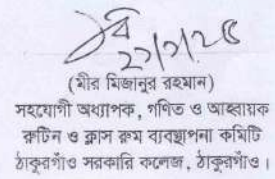 ২১/১/২৫
(মীর মিজানুর রহমান)
সহযোগী অধ্যাপক, গণিত ও আহ্বায়ক
রুটিন ও ক্লাস রুম ব্যবস্থাপনা কমিটি
ঠাকুরগাঁও সরকারি কলেজ, ঠাকুরগাঁও।